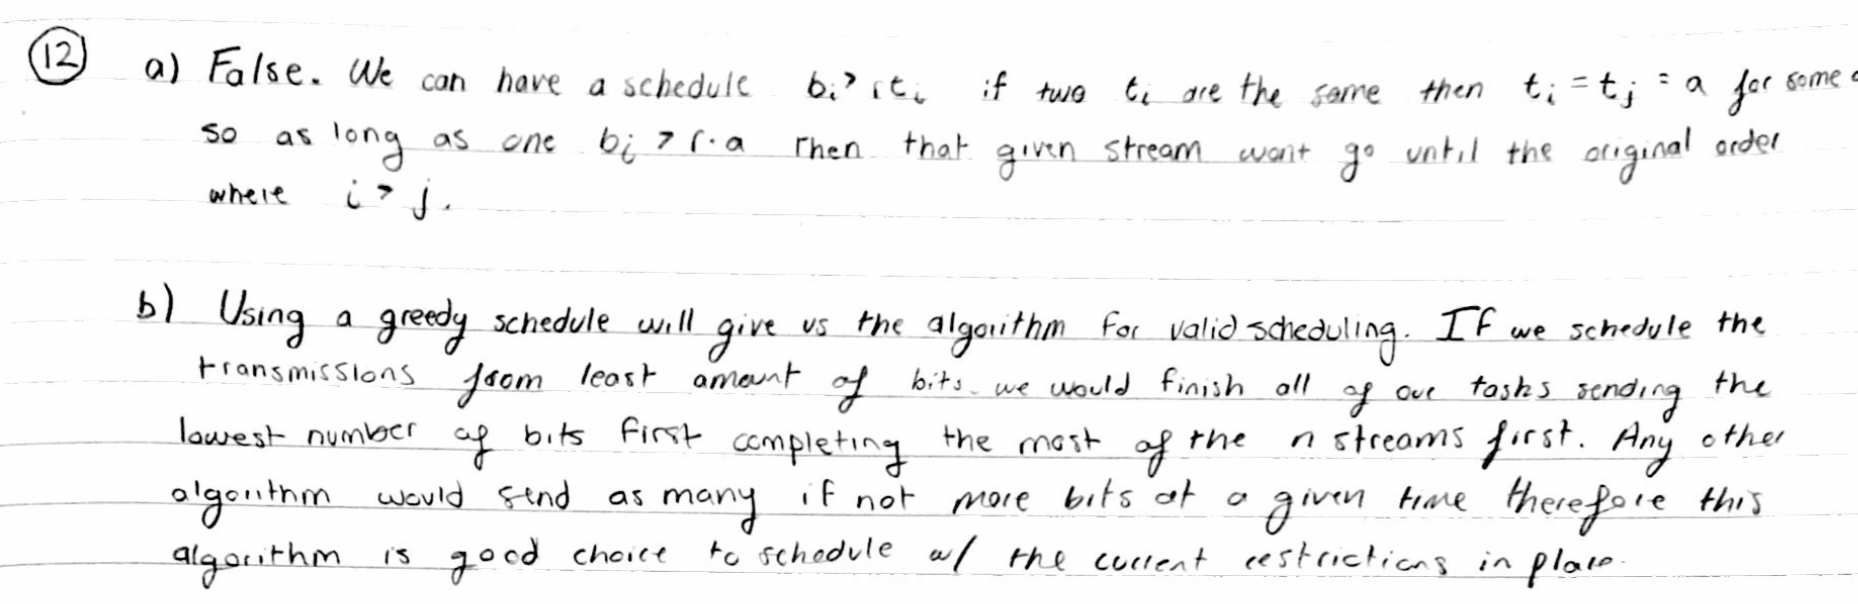 12 a) False. We can have a schedule bi > rti if two ti are the same then ti = tj = a for some
so as long as one bi > r·a then that given stream wont go until the original order
where i > j.
b) Using a greedy schedule will give us the algorithm for valid scheduling. If we schedule the
transmissions from least amount of bits we would finish all of our tasks sending the
lowest number of bits first completing the most of the n streams first. Any other
algorithm would send as many if not more bits at a given time therefore this
algorithm is good choice to schedule w/ the current restrictions in place.